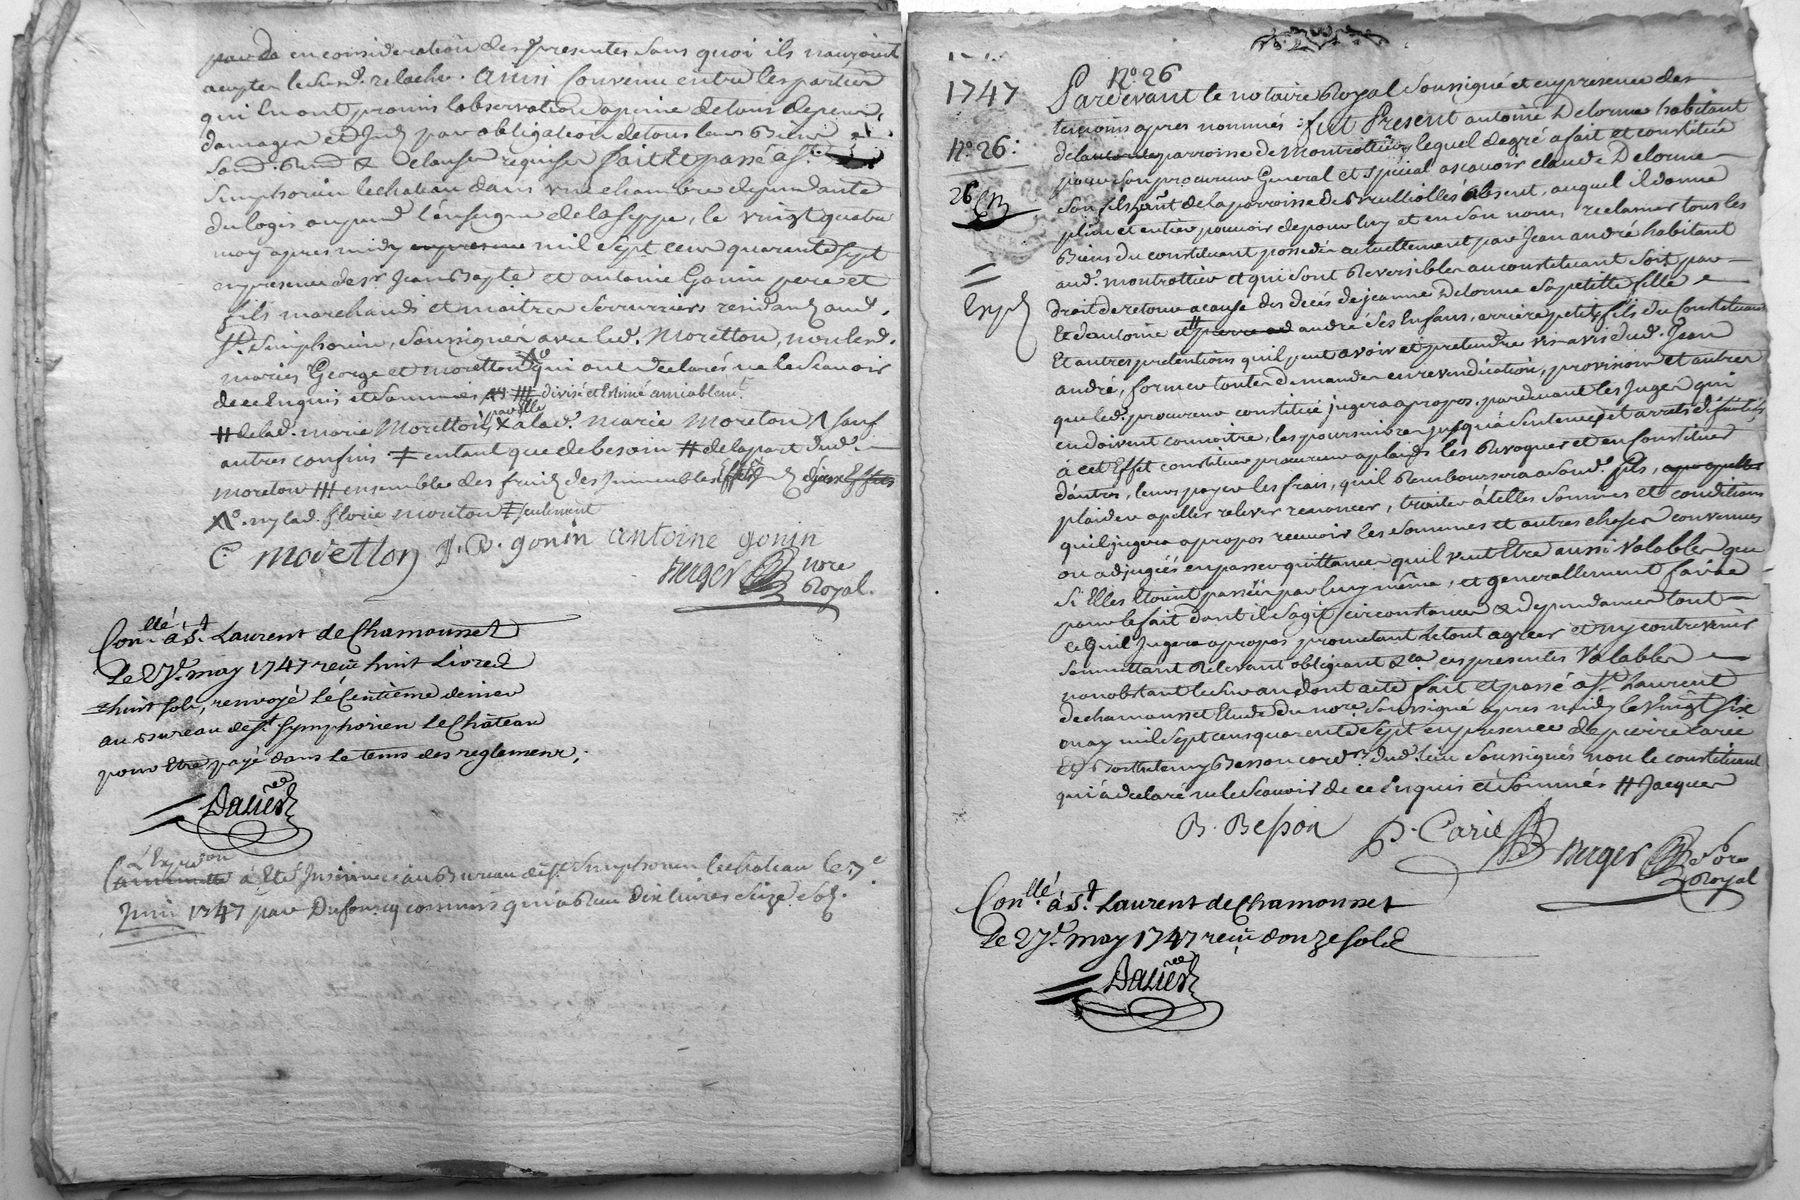 par de en consideration des presentes sans quoi ils nauroint
accepter le susd. relache. Ainsi Convenu entre les parties
qui en ont promis l'observation a peine de tous depens,
damages et par obligation de tous leurs Biens
clauses requises fait et passé a St.
Simphorien le chateau dans une chambre dependante
du logis ou pend l'enseigne de la le vingt quatre
may apres midy mil sept cens quarente sept
en presence des srs Jean Bapte. et antoine Gonin pere et
fils marchands et maitres serruriers residants aud.
St. Simphorien, soussignés avec led. Moretton, non lesd.
mariés George et moretton qui ont declarés ne le scavoir
de ce enquis et sommés divisé et estimé amiablemt.
# de lad. marie Moretton, par elle a lad. marie moreton sauf
autres confins entant que de besoin # de la part dud.
moreton ensemble des fruits des immeubles
ny lad. florie moreton seulement
C. Moretton J. B. gonin antoine gonin
Berger nore
Royal.
Conllé. à St. Laurent de Chamousset
Le 27e. may 1747 reçu huit Livres
huit sols, renvoyé le Centième denier
au Bureau de St. Symphorien le Château
pour Etre payé dans le tems des reglemens.
Daliés
L'Expon
a eté Insinuée au Bureau de St. Simphorien le chateau le 7e
Juin 1747 par Dufourcq commis qui a Reçu dix livres seize sols.
1747
No. 26
No. 26:
26
Expd
Pardevant le notaire Royal soussigné et en presence des
temoins apres nommés: fut Present antoine Delorme habitant
de la parroisse de Montrottier, lequel de gré a fait et constitué
pour son procureur General et special ascavoir claude Delorme
son fils hant. de la parroisse de Brulliolles absent, auquel il donne
plein et entier pouvoir de pour luy et en son nom reclamer tous les
Biens du constituant possedés actuellement par Jean andré habitant
aud. montrottier et qui sont Reversibles au constituant soit par
droit de retour a cause des deces de jeanne Delorme sa petitte fille
Et d'antoine et # pierre andré ses Enfans, arriere petits fils du Constituant
Et autres pretentions quil peut avoir et pretendre vis a vis dud. Jean
andré, former toutes demandes en revendication, provision et autres
que led. procureur constitué jugera a propos, pardevant les Juges qui
en doivent connoitre, les poursuivre jusqu'à sentences et arrets definitifs,
a cet Effet constituer procureur a plaids les Revoquer et en constituer
d'autres, leurs payer les frais, quil Remboursera a sond. fils,
plaider apeller relever renoncer, traiter à telles sommes et conditions
quil jugera a propos recevoir les sommes et autres choses convenues
ou adjugées en passer quittances quil veut Etre aussi Valables que
si Elles Etoient passées par luy même, et generallement faire
pour le fait dont il s'agit circonstances & dependances tout
ce Quil Jugera a propos promettant le tout agreer et ny contrevenir
soumettant Relevant obligeant &ca. ces presentes Valables
nonobstant le suran, dont acte fait et passé a St. Laurent
de chamousset Etude du nore. Soussigné apres midy le vingt six
may mil sept cens quarente sept en presence de pierre Carié
Et Barthelemy Besson cordrs. dud. lieu Soussignés non le constituant
qui à declaré ne le scavoir de ce Enquis et sommés # Jacques
B. Besson P. Carié
Berger Nore
Royal
Conllé. à St. Laurent de Chamousset
Le 27e. may 1747 reçu douze sols
Daliés